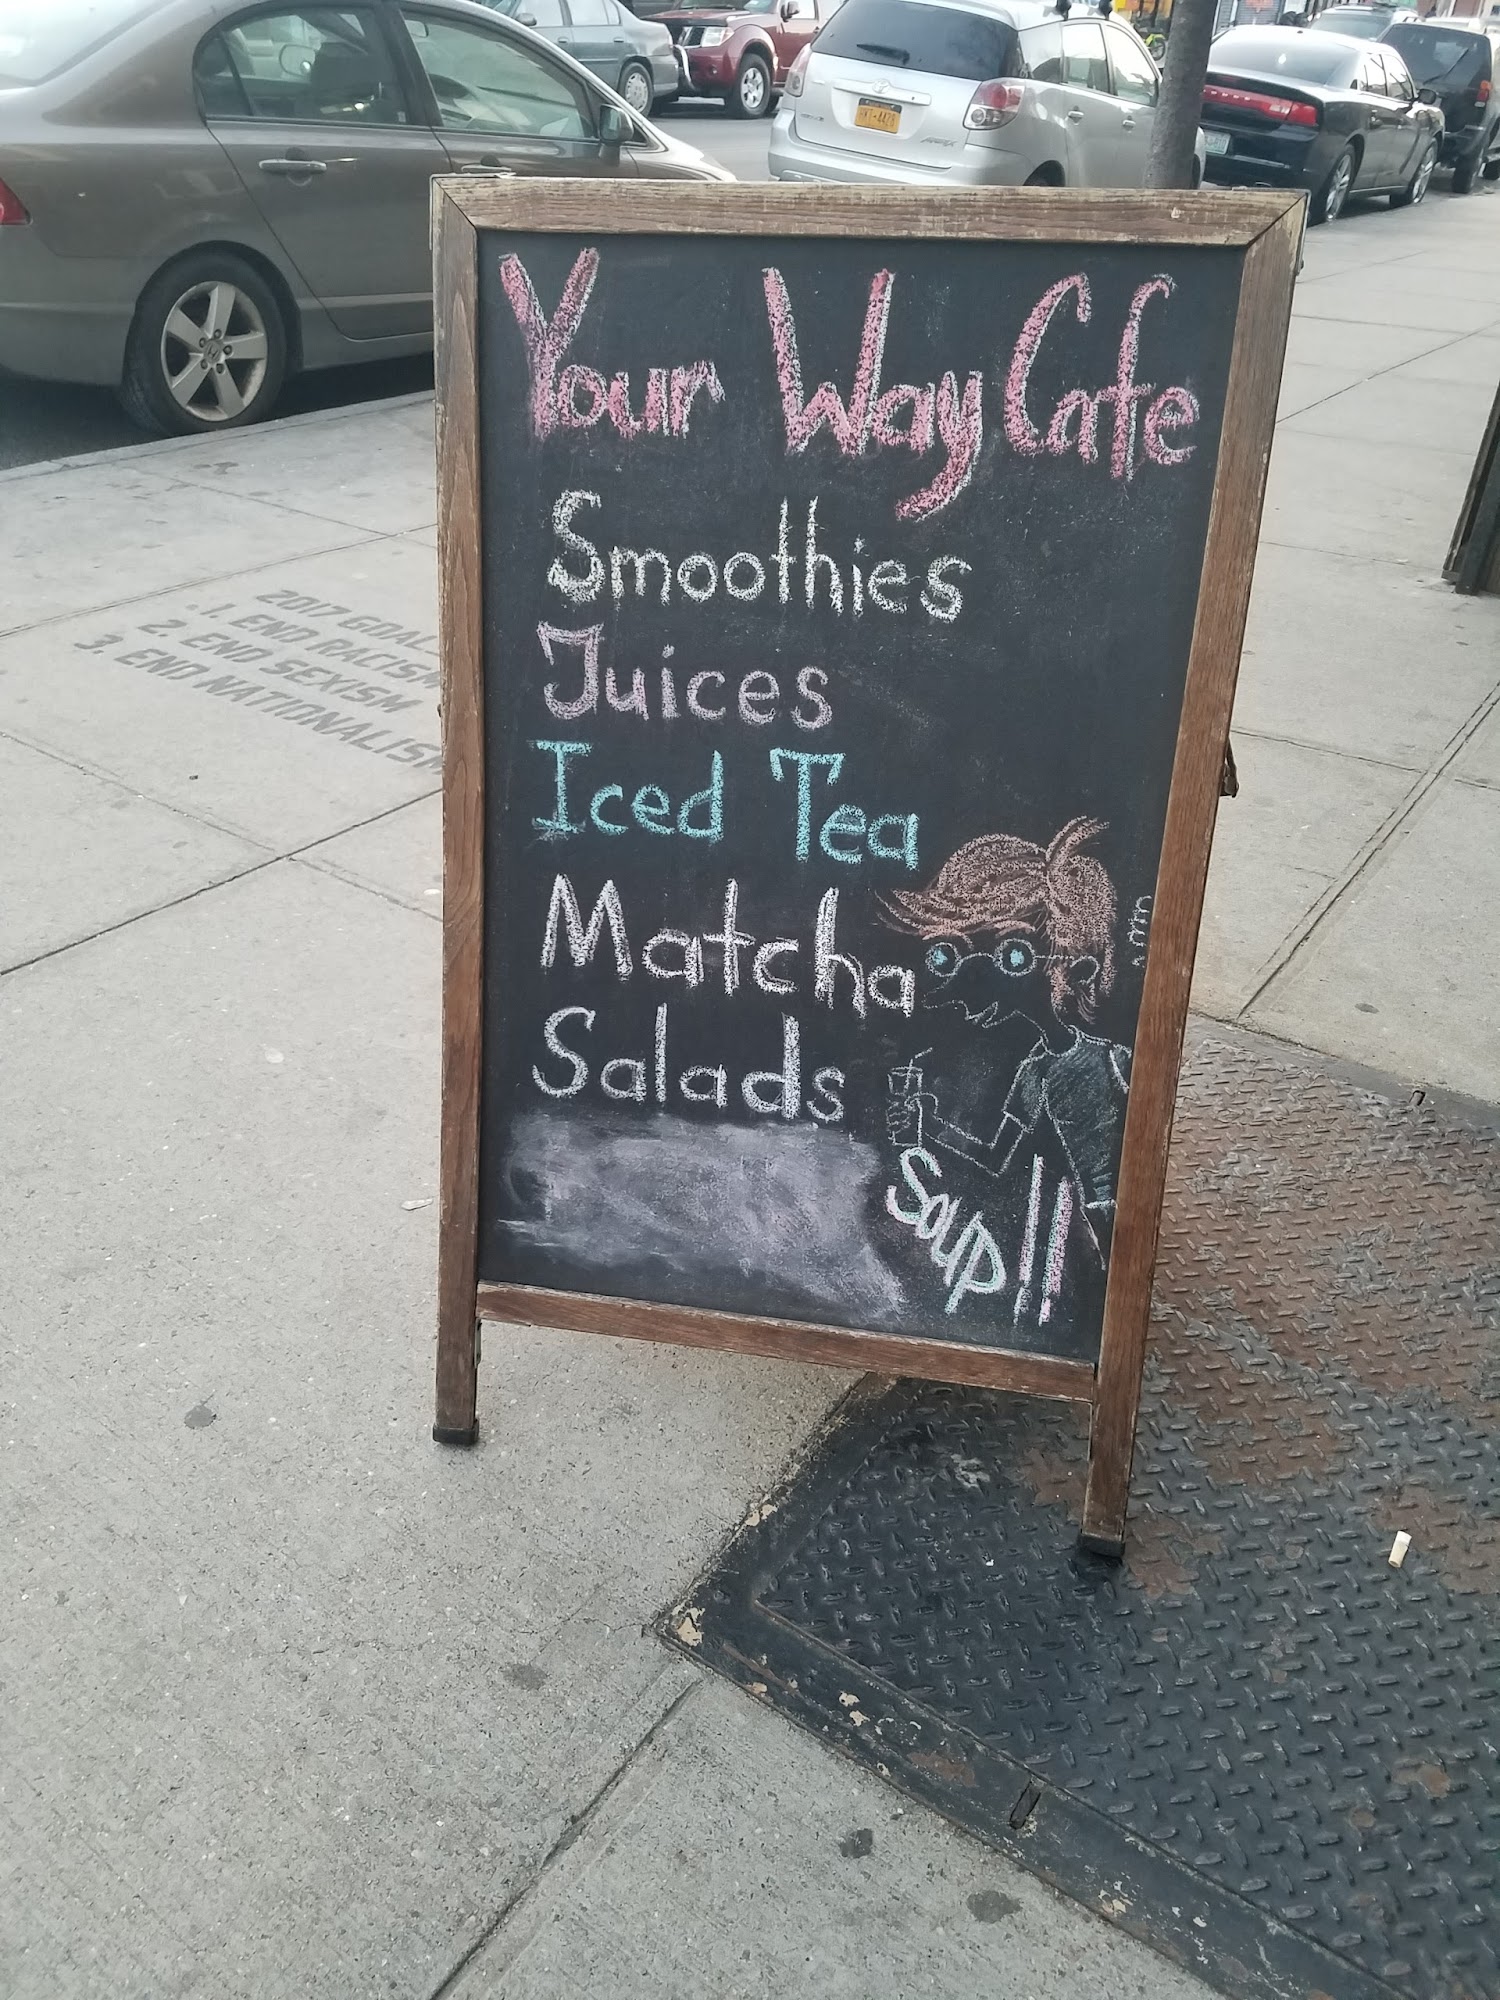 Your Way Cafe
Smoothies
Juices
Iced Tea
Matcha
Salads
Soup!!
2017 GOAL
1. END RACISM
2. END SEXISM
3. END NATIONALISM